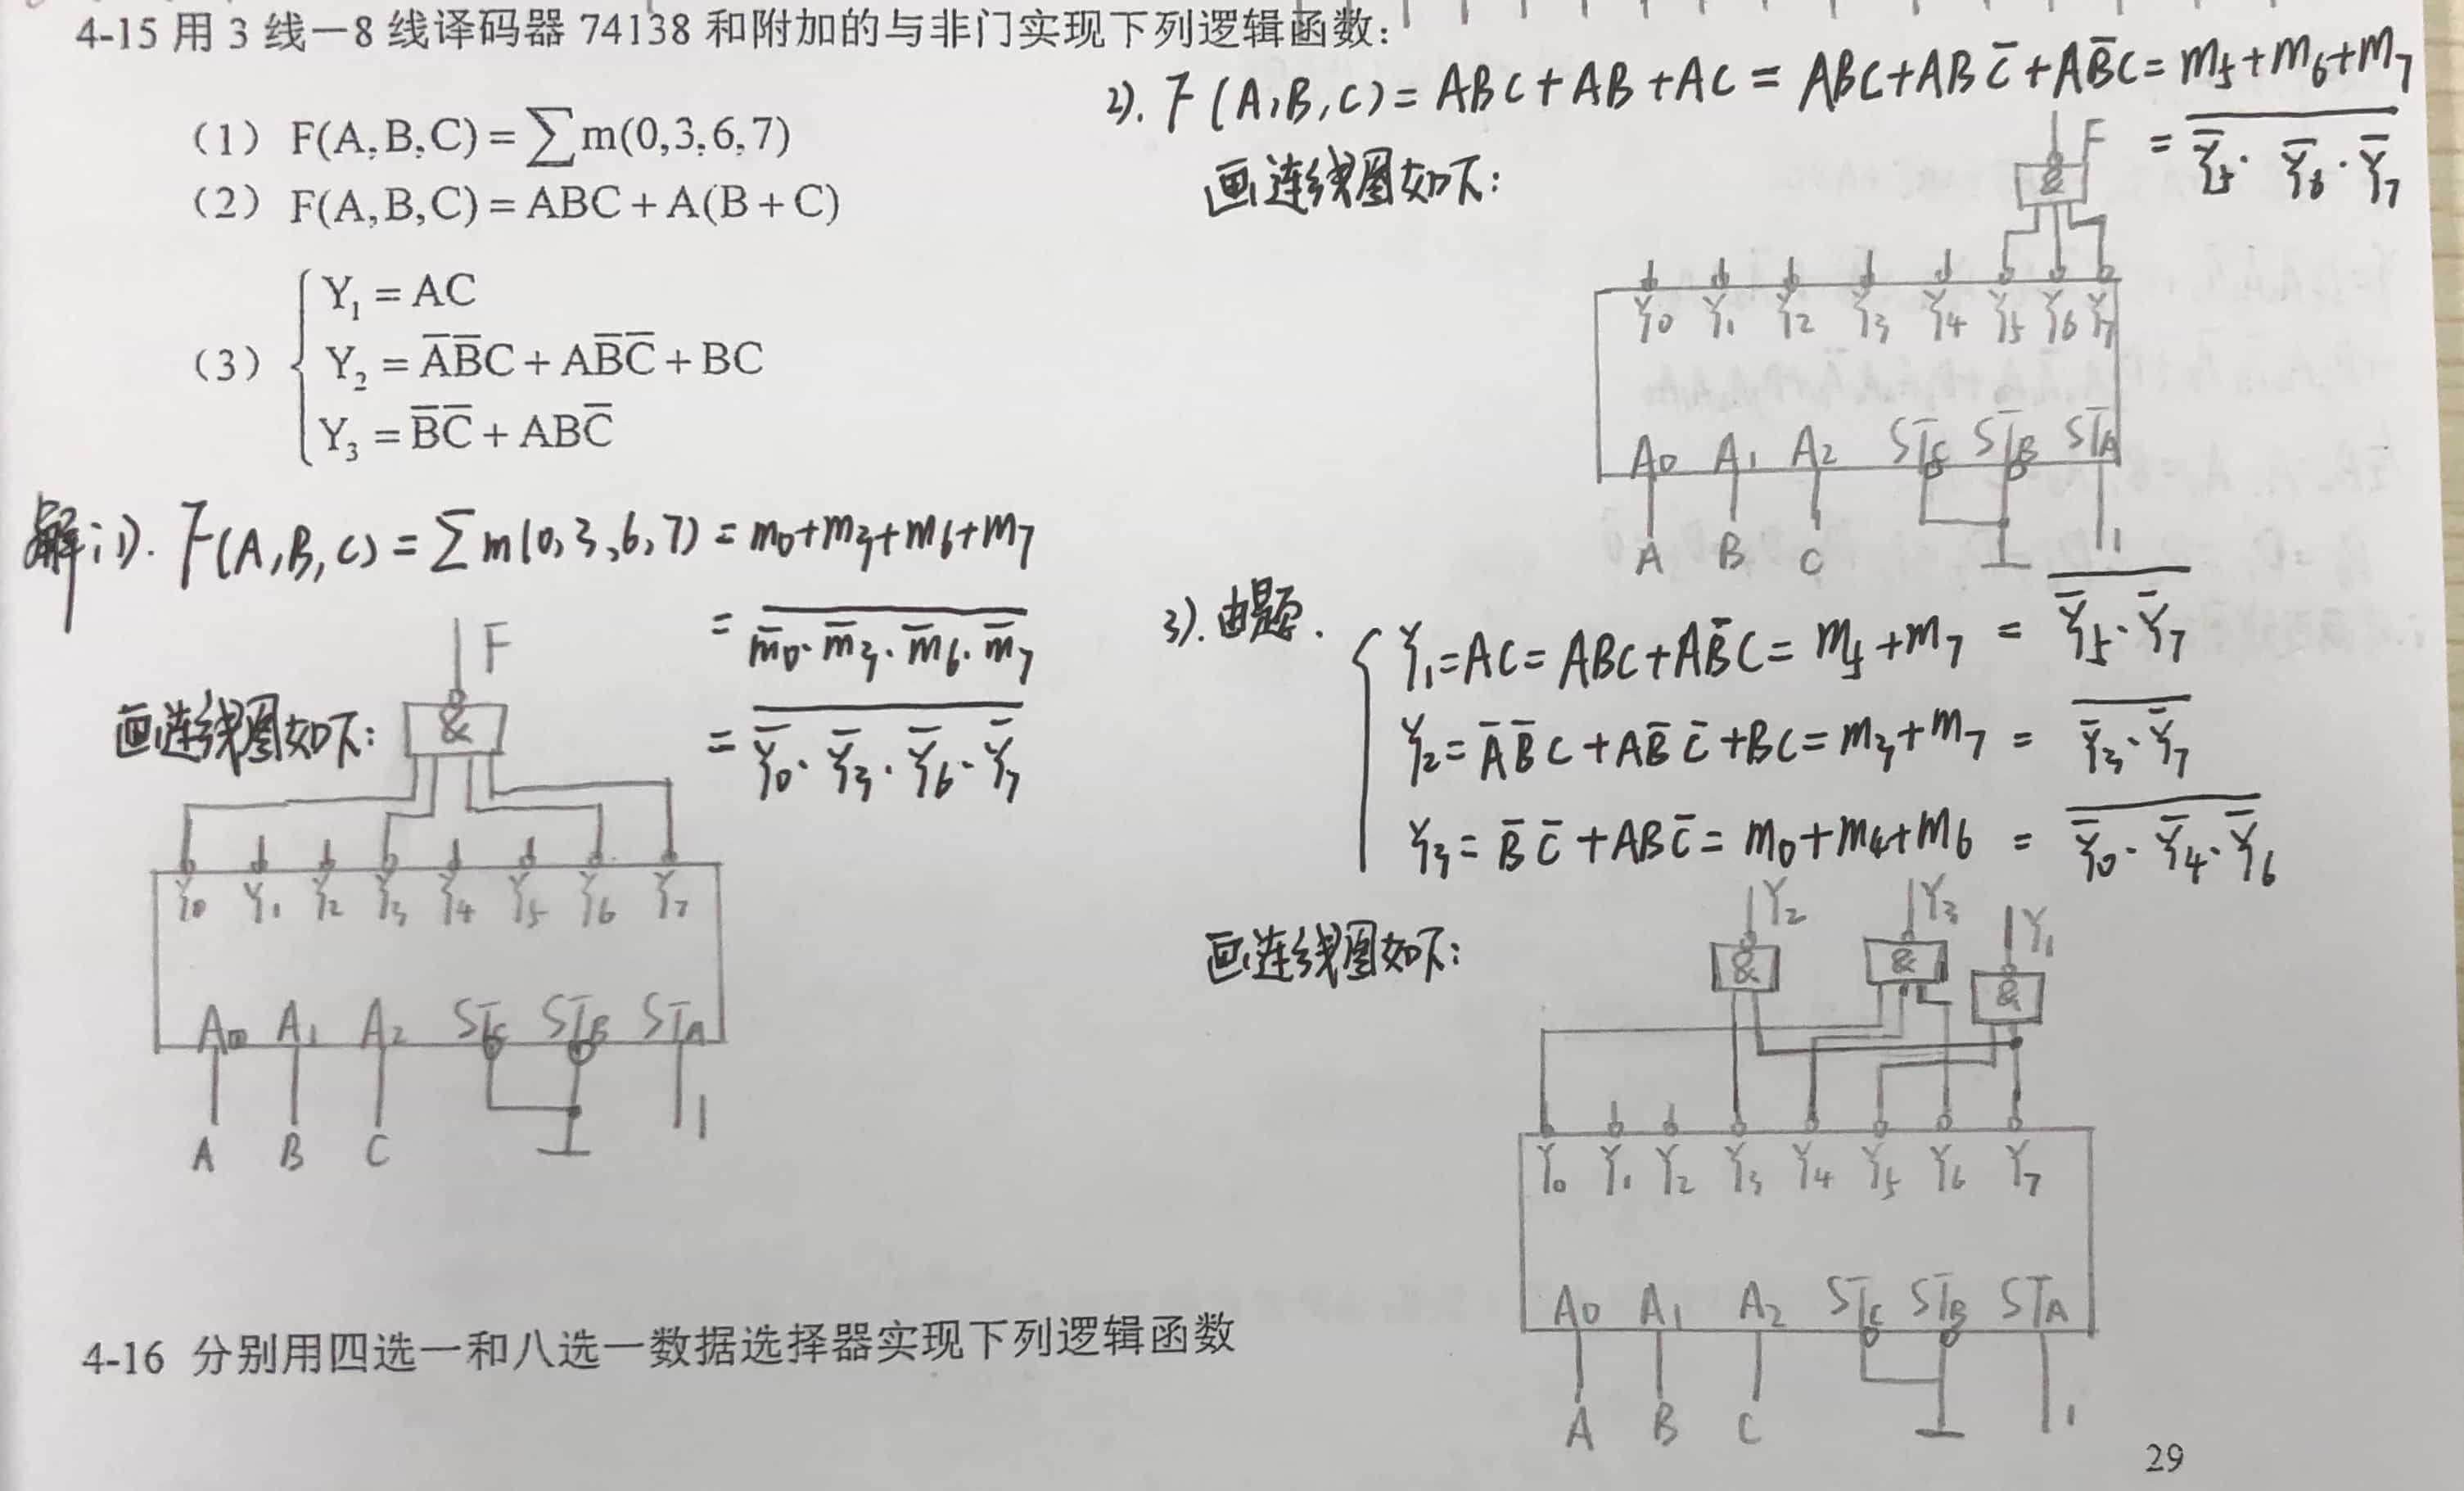 4-15 用 3 线－8 线译码器 74138 和附加的与非门实现下列逻辑函数:
（1） F(A,B,C) = ∑m(0,3,6,7)
（2） F(A,B,C) = ABC + A(B + C)
（3） { Y₁ = AC
Y₂ = A̅B̅C + AB̅C̅ + BC
Y₃ = B̅C̅ + ABC̅
解:1). F(A,B,C) = ∑m(0,3,6,7) = m₀+m₃+m₆+m₇
= \overline{m̅₀·m̅₃·m̅₆·m̅₇}
= \overline{Y̅₀·Y̅₃·Y̅₆·Y̅₇}
画连线图如下:
F
&
Y₀ Y₁ Y₂ Y₃ Y₄ Y₅ Y₆ Y₇
A₀ A₁ A₂ S̅T̅_C S̅T̅_B ST_A
A B C 1
2). F(A,B,C) = ABC+AB+AC = ABC+ABC̅+AB̅C = m₅+m₆+m₇
= \overline{Y̅₅·Y̅₆·Y̅₇}
画连线图如下:
F
&
Y₀ Y₁ Y₂ Y₃ Y₄ Y₅ Y₆ Y₇
A₀ A₁ A₂ S̅T̅_C S̅T̅_B ST_A
A B C 1
3). 由题.
{ Y₁=AC=ABC+AB̅C=m₅+m₇ = \overline{Y̅₅·Y̅₇}
Y₂=A̅B̅C+AB̅C̅+BC=m₃+m₇ = \overline{Y̅₃·Y̅₇}
Y₃=B̅C̅+ABC̅=m₀+m₄+m₆ = \overline{Y̅₀·Y̅₄·Y̅₆}
画连线图如下:
Y₂ Y₃ Y₁
& & &
Y₀ Y₁ Y₂ Y₃ Y₄ Y₅ Y₆ Y₇
A₀ A₁ A₂ S̅T̅_C S̅T̅_B ST_A
A B C 1
4-16 分别用四选一和八选一数据选择器实现下列逻辑函数
29